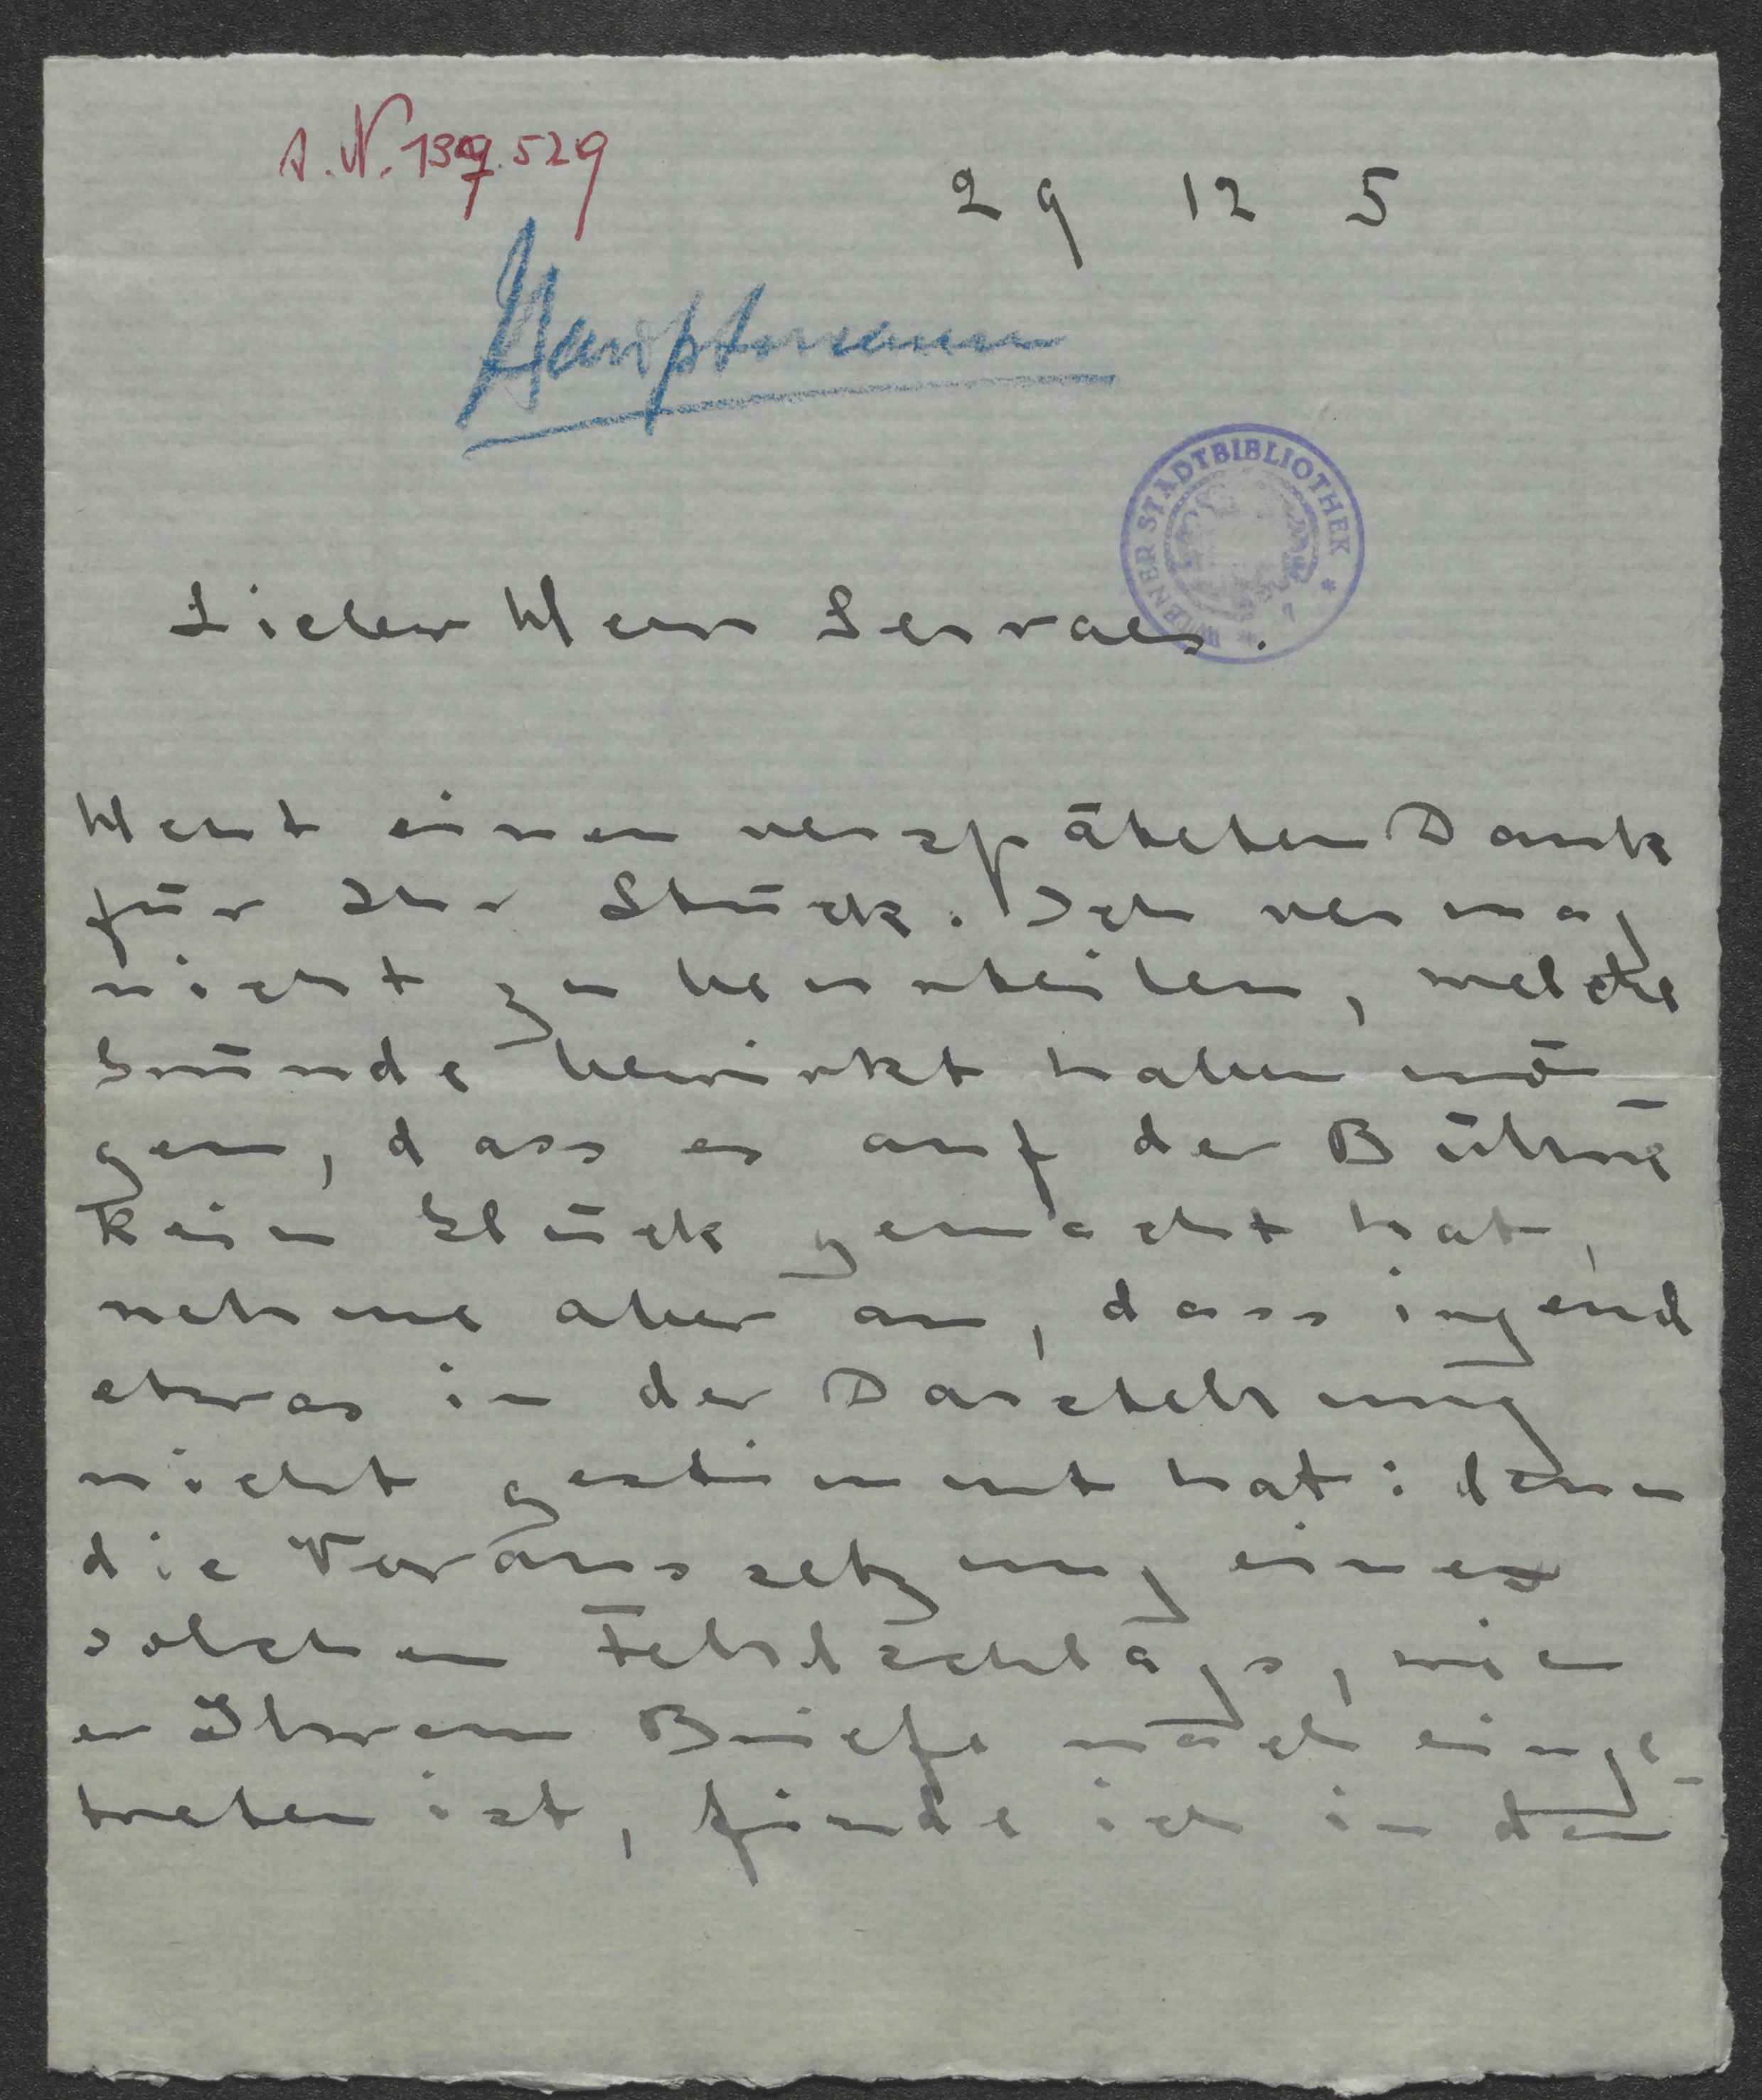 I. N. 139.529
29 12 5
Hauptmann
WIENER STADTBIBLIOTHEK
Lieber Herr Servaes.
Heut einen verspäteten Dank
für Ihr Stück. Ich vermag
nicht zu beurteilen, welche
Gründe bewirkt haben mö
gen, dass es auf der Bühne
kein Glück gemacht hat,
nehme aber an, dass irgend
etwas in der Darstellung
nicht gestimmt hat: denn
die Voraussetzung eines
solchen Fehlschlags, wie
er Ihrem Briefe nach einge-
treten ist, finde ich in dem